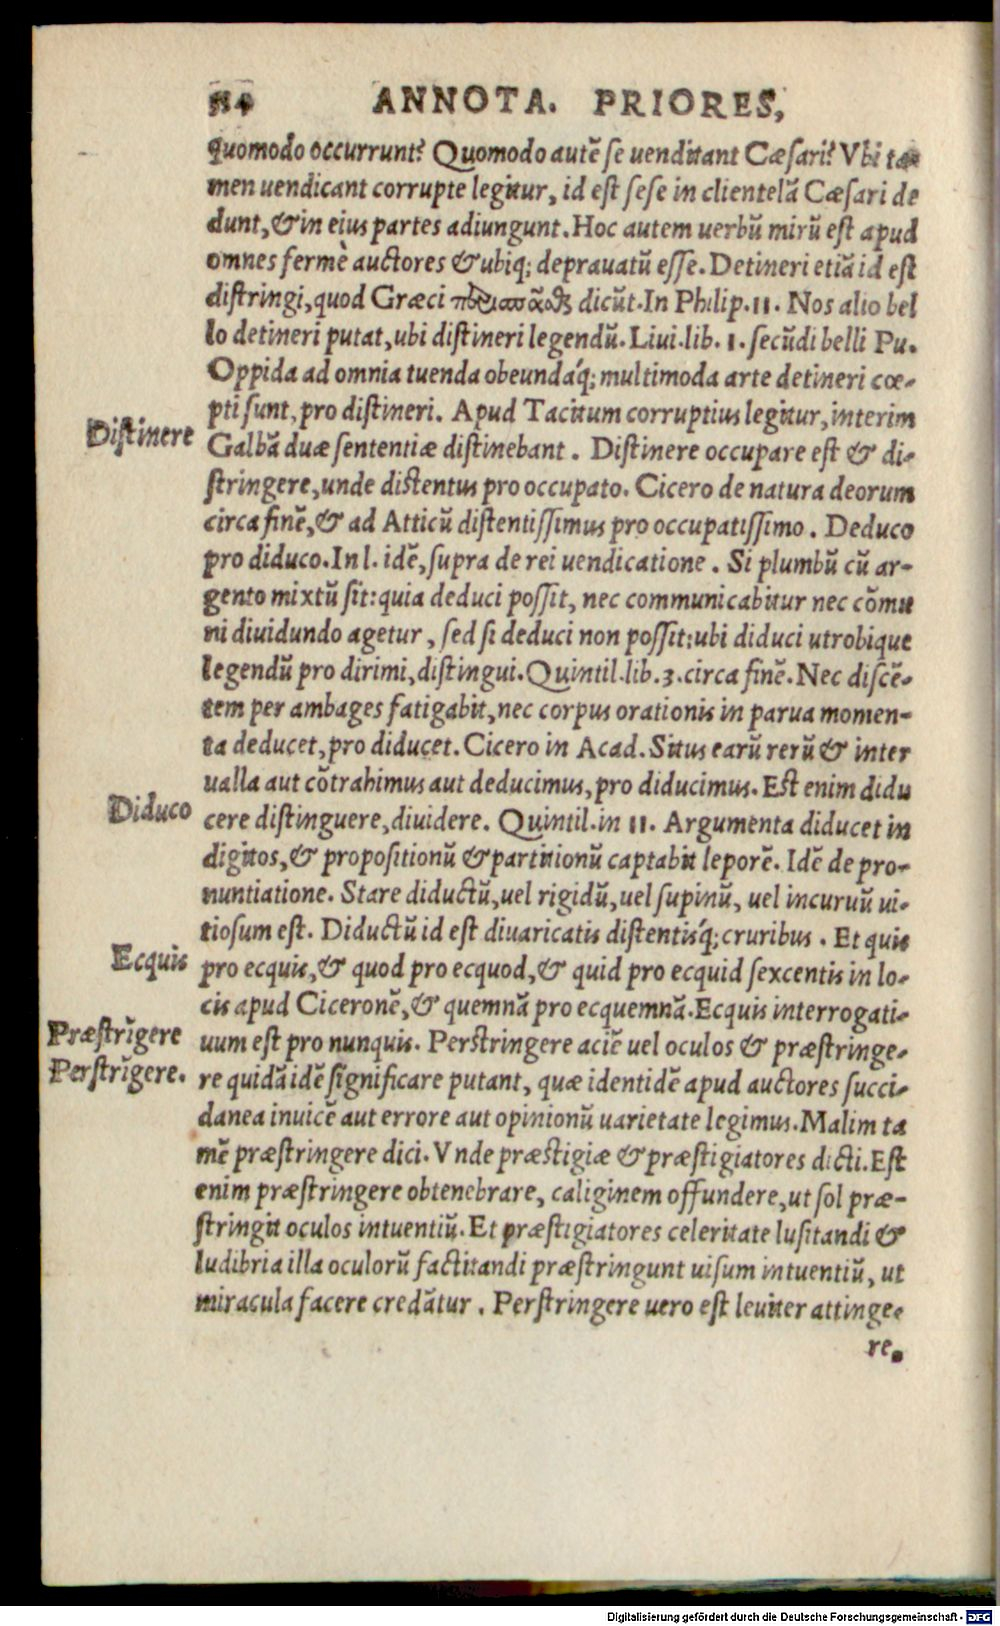 114 ANNOTA. PRIORES,
quomodo occurrunt? Quomodo autẽ se uenditant Cæsari? Vbi ta
men uendicant corrupte legitur, id est sese in clientelã Cæsari de
dunt, & in eius partes adiungunt. Hoc autem uerbũ mirũ est apud
omnes fermè auctores & ubiq; deprauatũ esse. Detineri etiã id est
distringi, quod Græci dicũt. In Philip. 11. Nos alio bel
lo detineri putat, ubi distineri legendũ. Liui. lib. 1. secũdi belli Pu.
Oppida ad omnia tuenda obeundáq; multimoda arte detineri cœ-
pti sunt, pro distineri. Apud Tacitum corruptius legitur, interim
Distinere
Galbã duæ sententiæ distinebant. Distinere occupare est & di-
stringere, unde distentus pro occupato. Cicero de natura deorum
circa finẽ, & ad Atticũ distentissimus pro occupatissimo. Deduco
pro diduco. In l. idẽ, supra de rei uendicatione. Si plumbũ cũ ar-
gento mixtũ sit: quia deduci possit, nec communicabitur nec cõmu
ni diuidundo agetur, sed si deduci non possit: ubi diduci utrobique
legendũ pro dirimi, distingui. Quintil. lib. 3. circa finẽ. Nec discẽ-
tem per ambages fatigabit, nec corpus orationis in parua momen-
ta deducet, pro diducet. Cicero in Acad. Situs earũ rerũ & inter
ualla aut cõtrahimus aut deducimus, pro diducimus. Est enim didu
Diduco
cere distinguere, diuidere. Quintil. in 11. Argumenta diducet in
digitos, & propositionũ & partitionũ captabit leporẽ. Idẽ de pro-
nuntiatione. Stare diductũ, uel rigidũ, uel supinũ, uel incuruũ ui-
tiosum est. Diductũ id est diuaricatis distentisq́; cruribus. Et quis
Ecquis
pro ecquis, & quod pro ecquod, & quid pro ecquid sexcentis in lo-
cis apud Ciceronẽ, & quemnã pro ecquemnã. Ecquis interrogati-
Præstrĩgere
uum est pro nunquis. Perstringere aciẽ uel oculos & præstringe-
Perstrĩgere.
re quidã idẽ significare putant, quæ identidẽ apud auctores succi-
danea inuicẽ aut errore aut opinionũ uarietate legimus. Malim ta
mẽ præstringere dici. Vnde præstigiæ & præstigiatores dicti. Est
enim præstringere obtenebrare, caliginem offundere, ut sol præ-
stringit oculos intuentiũ. Et præstigiatores celeritate lusitandi &
ludibria illa oculorũ factitandi præstringunt uisum intuentiũ, ut
miracula facere credãtur. Perstringere uero est leuiter attinge-
re.
Digitalisierung gefördert durch die Deutsche Forschungsgemeinschaft - DFG